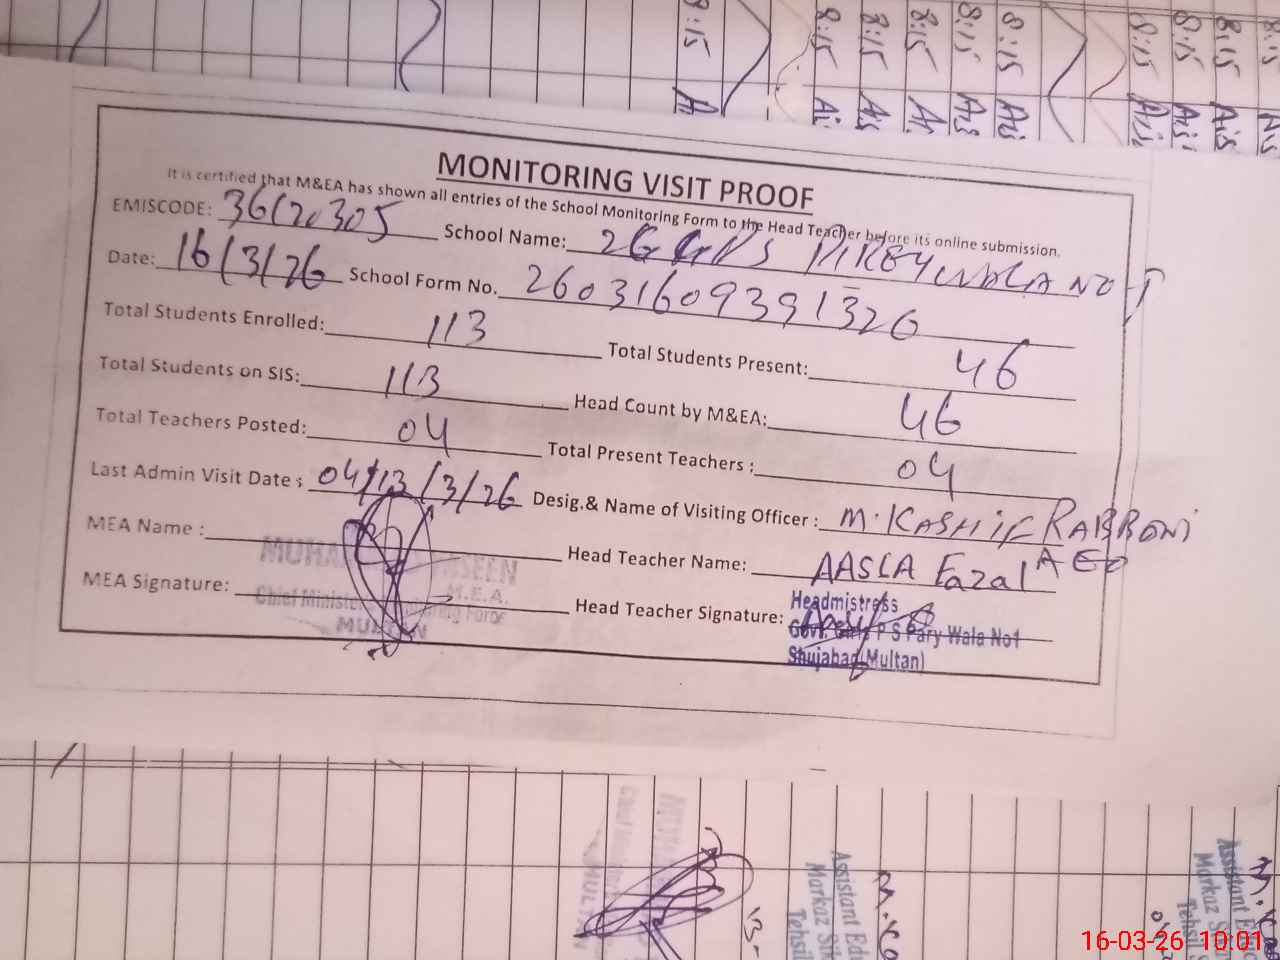 8:15 8:15 8:15 8:15 8:15 8:15 8:15 8:15 8:15 8:15
MONITORING VISIT PROOF
It is certified that M&EA has shown all entries of the School Monitoring Form to the Head Teacher before its online submission.
EMISCODE: School Name:
Date: 16/3/26 School Form No. 26031609391326
Total Students Enrolled: 113 Total Students Present: 46
Total Students on SIS: 113 Head Count by M&EA: 46
Total Teachers Posted: 04 Total Present Teachers : 04
Last Admin Visit Date : 13/3/26 Desig.& Name of Visiting Officer : M. KASHIF RABBONI
AEO
MEA Name : Head Teacher Name: AASIA Fazal
MEA Signature: Head Teacher Signature:
M.E.A.
MULTAN
Headmistress
Govt. Girls P S Pary Wala No1
Shujabad (Multan)
MULTAN
Assistant
Markaz
Tehsil
Assistant
Markaz
16-03-26 10:01